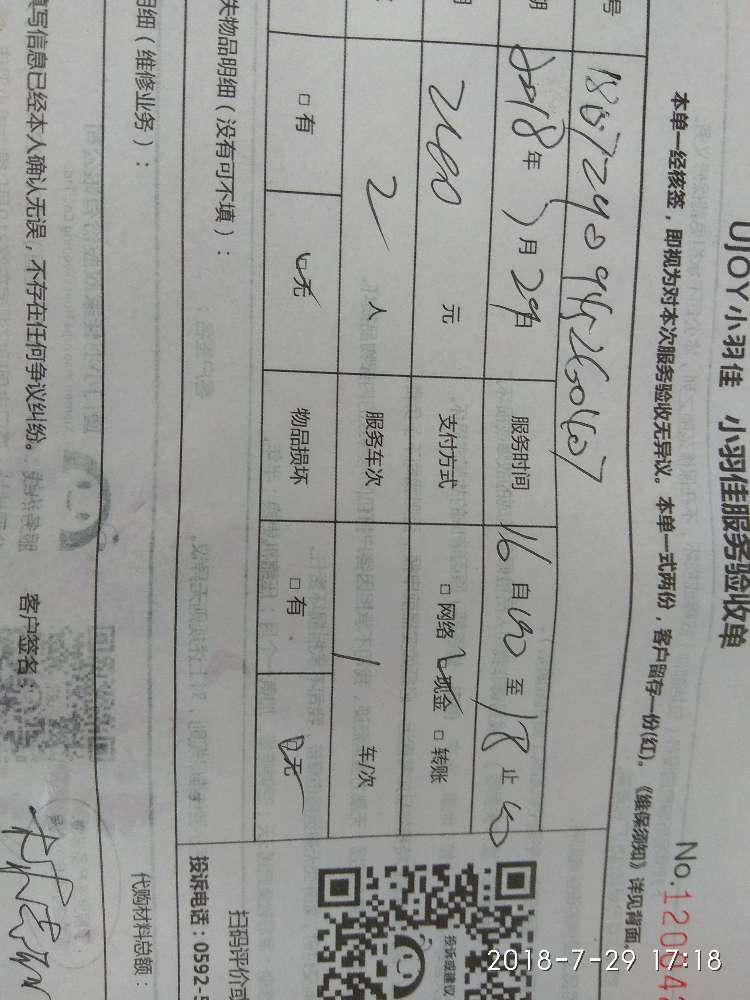 UJOY小羽佳 小羽佳服务验收单
本单一经核签，即视为对本次服务验收无异议。本单一式两份，客户留存一份(红)。《维保须知》详见背面。
No.12004
号
期 2018年7月29日 服务时间 16自00至18止00
2400元 支付方式 □网络 □现金 □转账
2人 服务车次 1车/次
□有 □无 物品损坏 □有 □无
失物品明细（没有可不填）：
明细（维修业务）：
填写信息已经本人确认无误，不存在任何争议纠纷。 客户签名：
投诉或建议
扫码评价或
投诉电话：0592-5
代购材料总额：
2018-7-29 17:18